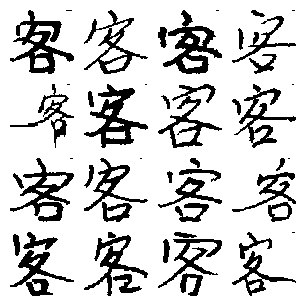 客客客客
客客客客
客客客客
客客客客